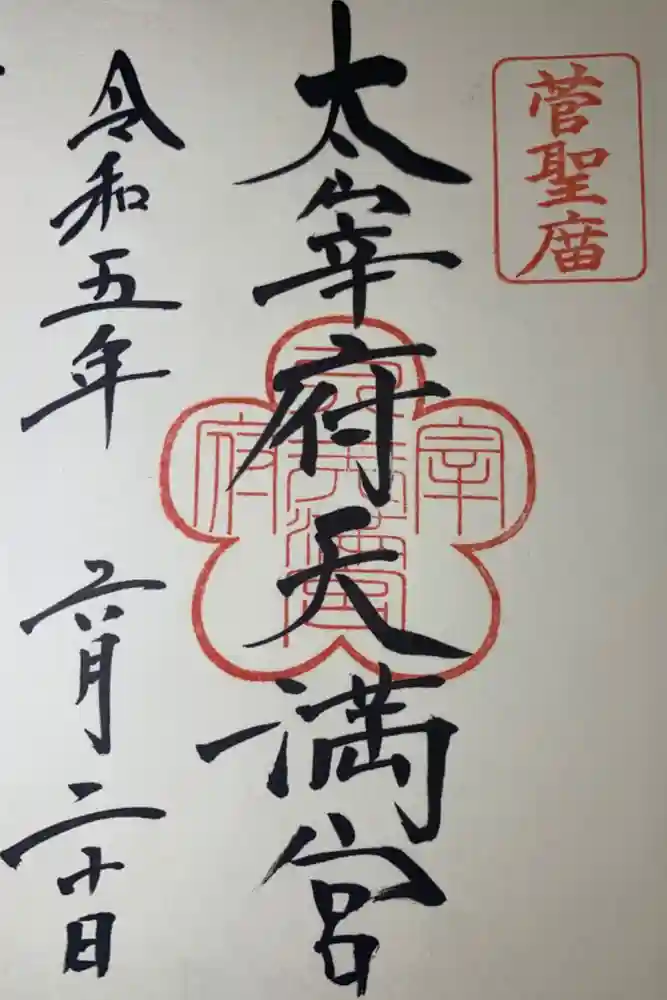 菅聖庿
太宰府天満宮
令和五年 六月二十日